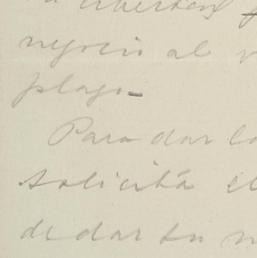 libertad,
negocio al
plazo.
Para dar
solicitá el
de dar su